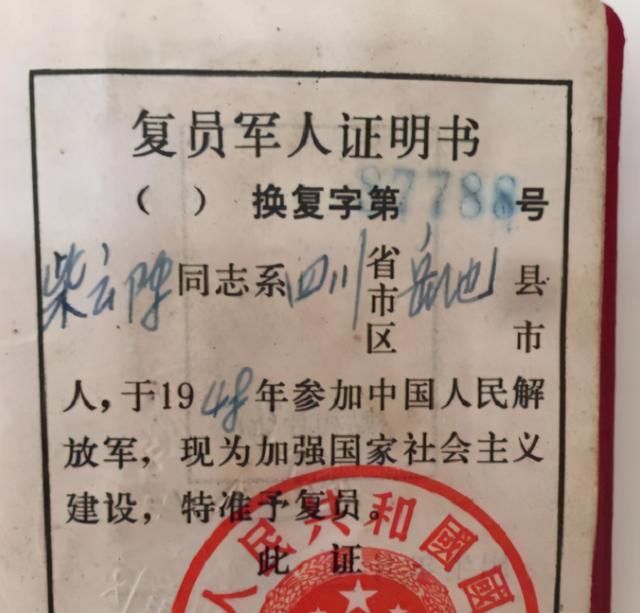 复员军人证明书
（ ） 换复字第87788号
柴云陞同志系四川省市区岳池县市
人，于1948年参加中国人民解
放军，现为加强国家社会主义
建设，特准予复员。
此 证
人民共和國國